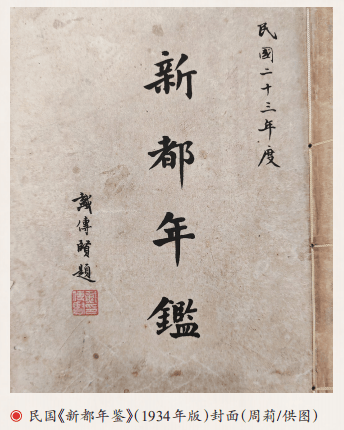 民國二十三年度
新都年鑑
戴傳賢題
民国《新都年鉴》(1934年版)封面(周莉/供图)